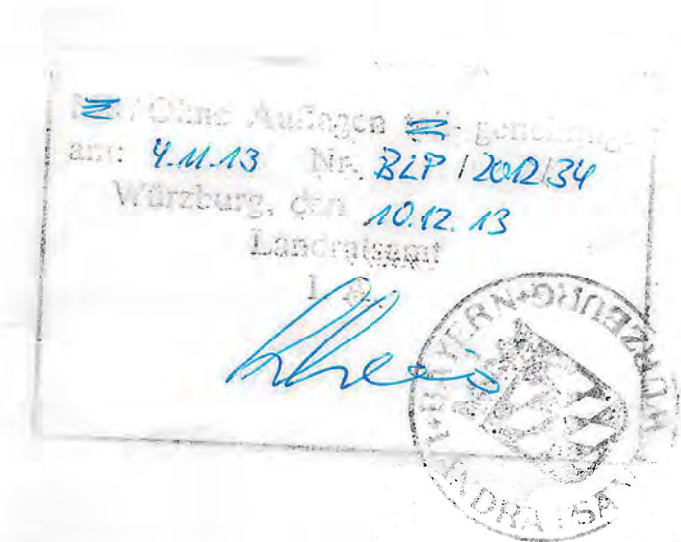 Mit/Ohne Auflagen genehmigt
am: 4.11.13 Nr. BLP/2012/34
Würzburg, den 10.12.13
Landratsamt
I. A.
BAYERN LANDRATSAMT WÜRZBURG